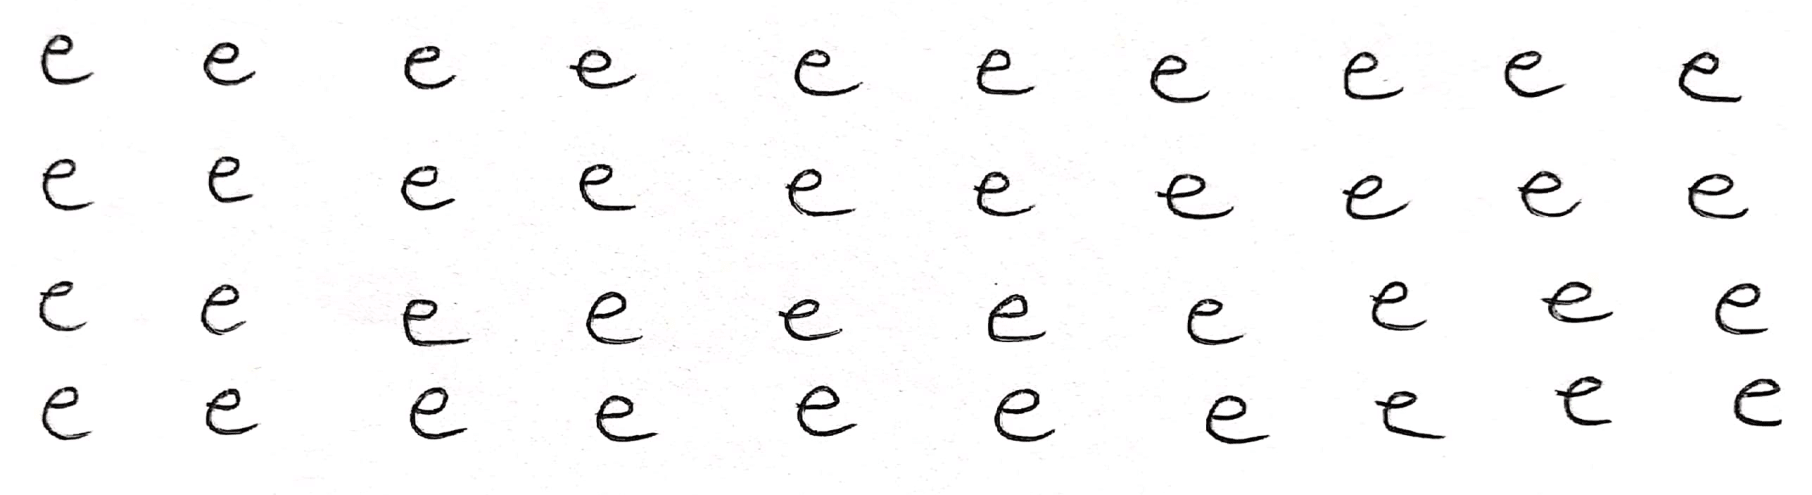 e e e e e e e e e e
e e e e e e e e e e
e e e e e e e e e e
e e e e e e e e e e